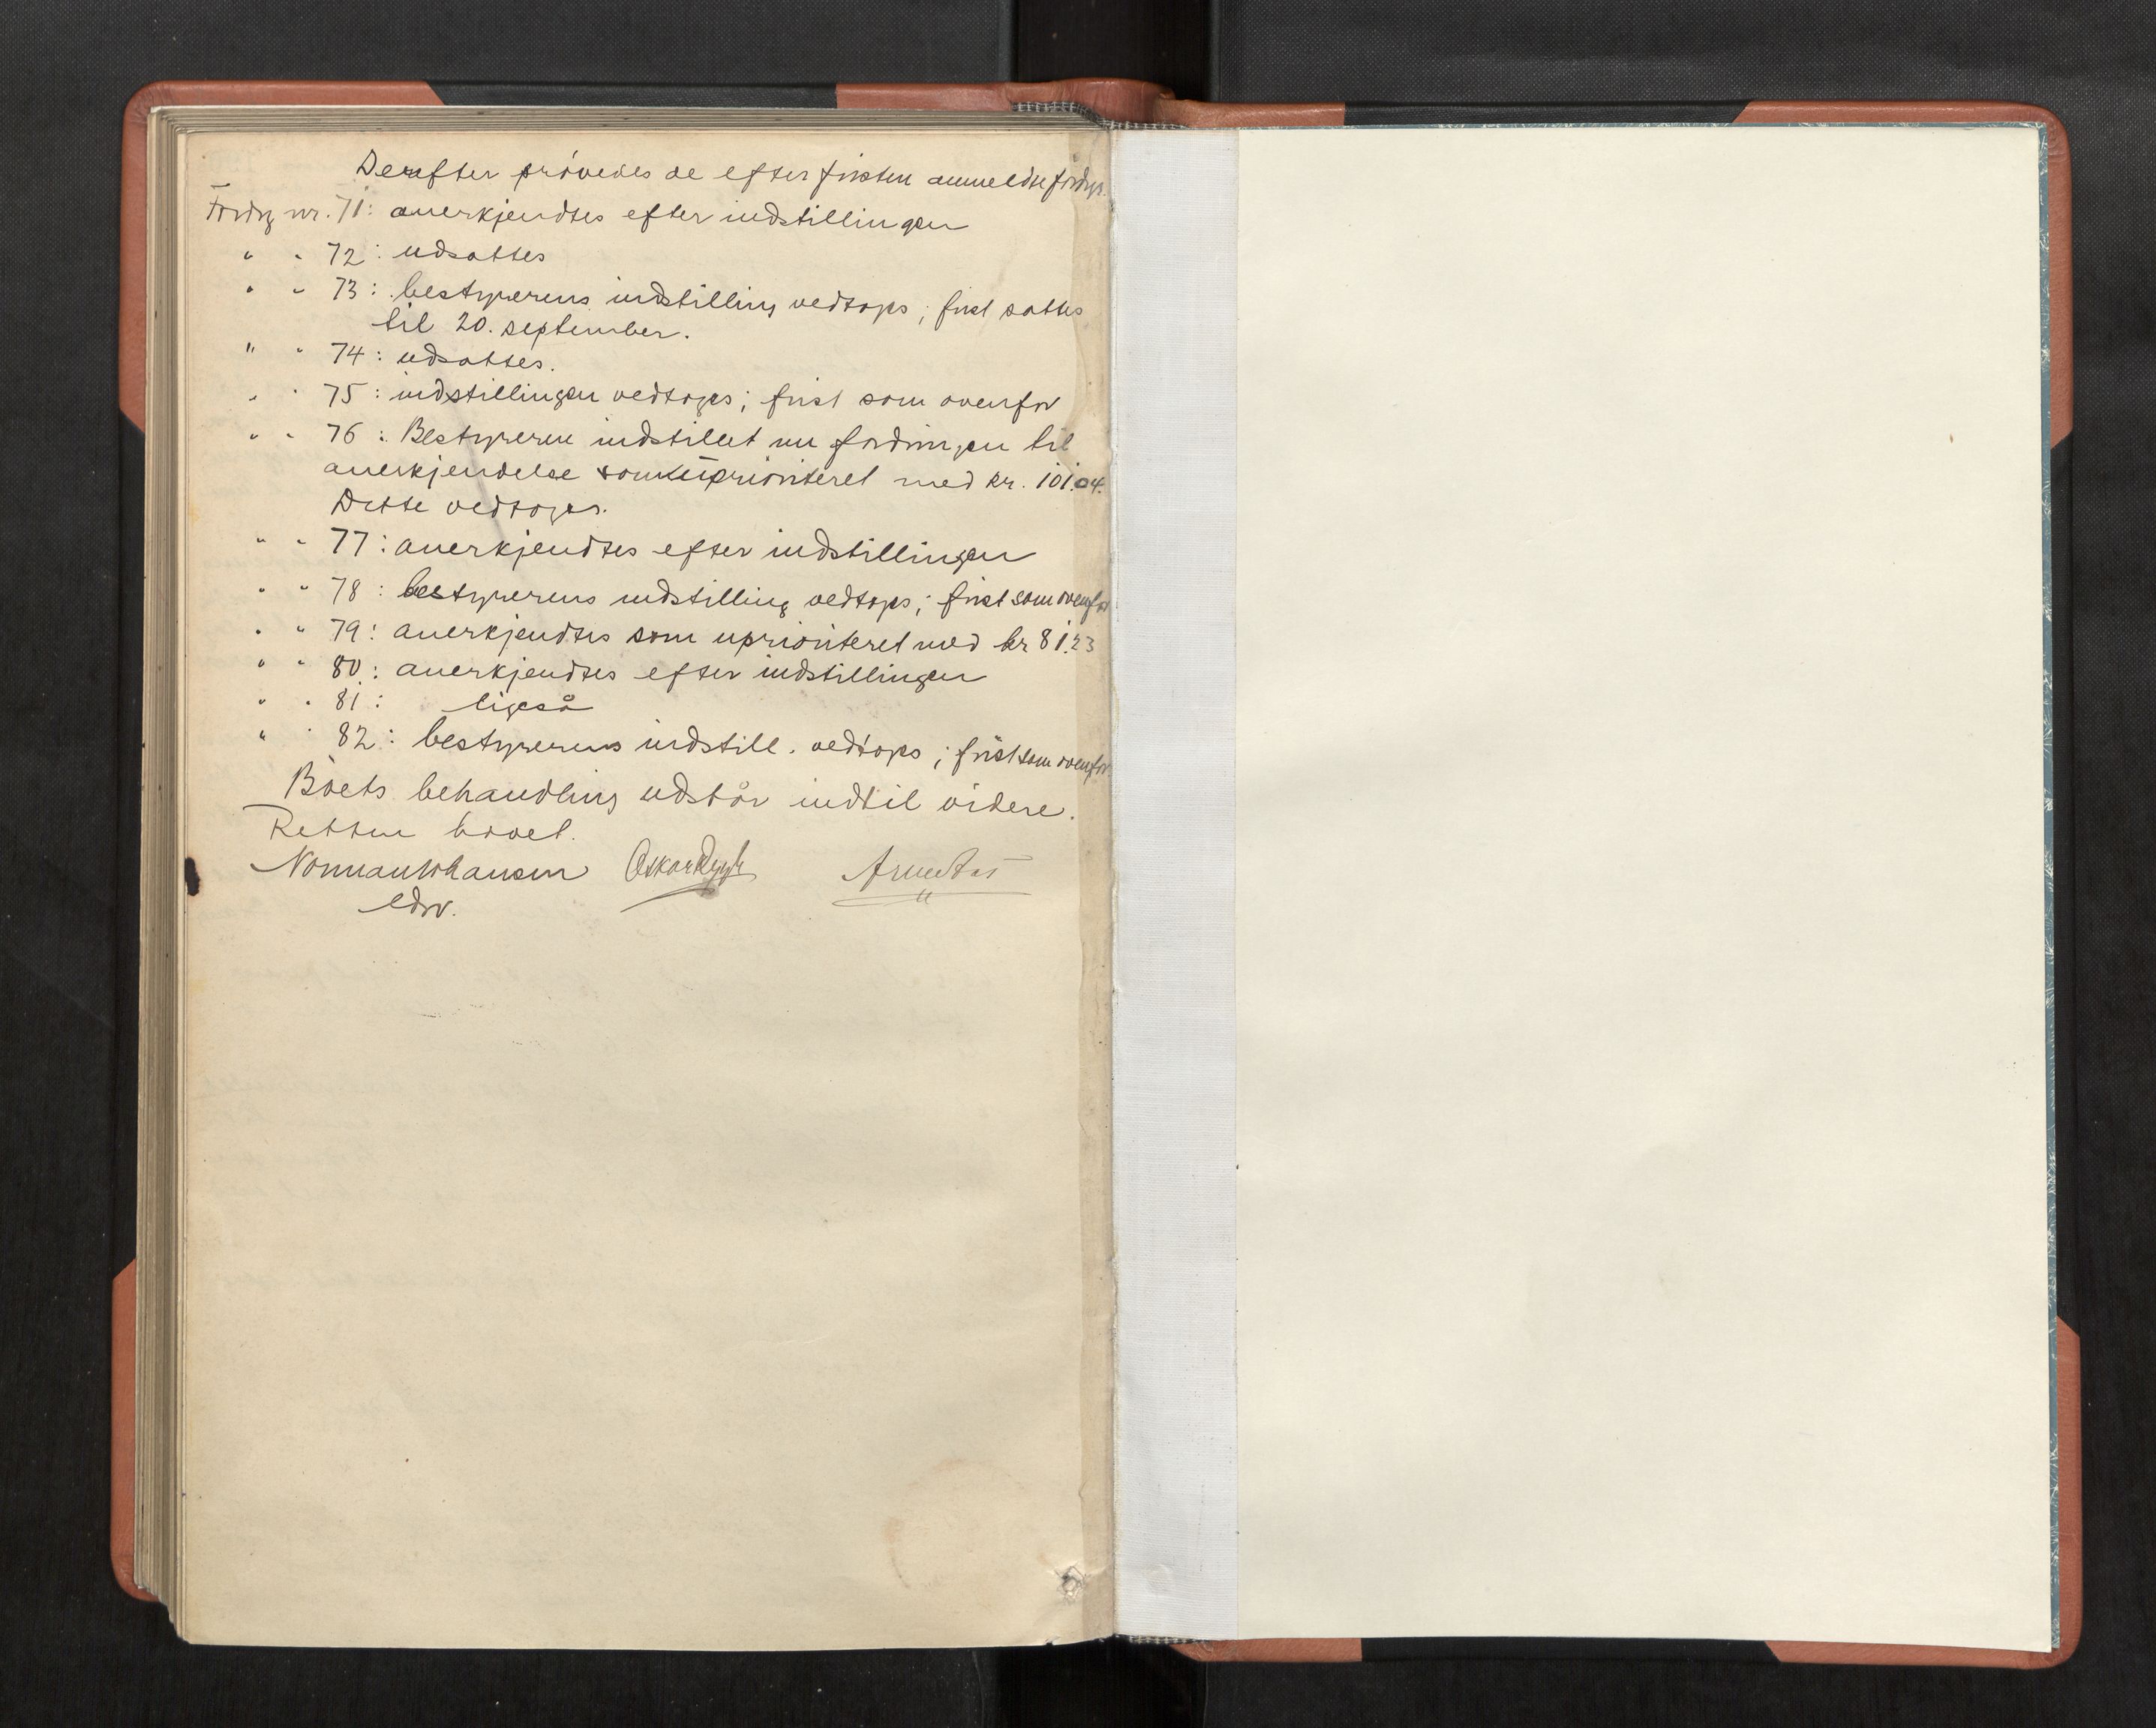 Derefter prövedes de efter fristen anmeldte fordgr.
Fordrg nr. 71: anerkjendtes efter indstillingen
" " 72: udsattes
" " 73: bestyrerens indstilling vedtoges; frist sattes
til 20. september.
" " 74: udsattes.
" " 75: indstillingen vedtoges; frist som ovenfor
" " 76: Bestyreren indstillet nu fordringen til
anerkjendelse som uprioriteret med kr. 101.04.
Dette vedtoges.
" " 77: anerkjendtes efter indstillingen
" " 78: bestyrerens indstilling vedtoges; frist som ovenfor
" " 79: anerkjendtes som uprioriteret med kr 81.23
" " 80: anerkjendtes efter indstillingen
" " 81: ligeså
" " 82: bestyrerens indstill. vedtoges; frist som ovenfor
Boets behandling udstår indtil videre.
Retten hævet.
Norman Johansen Oskar
edsv.